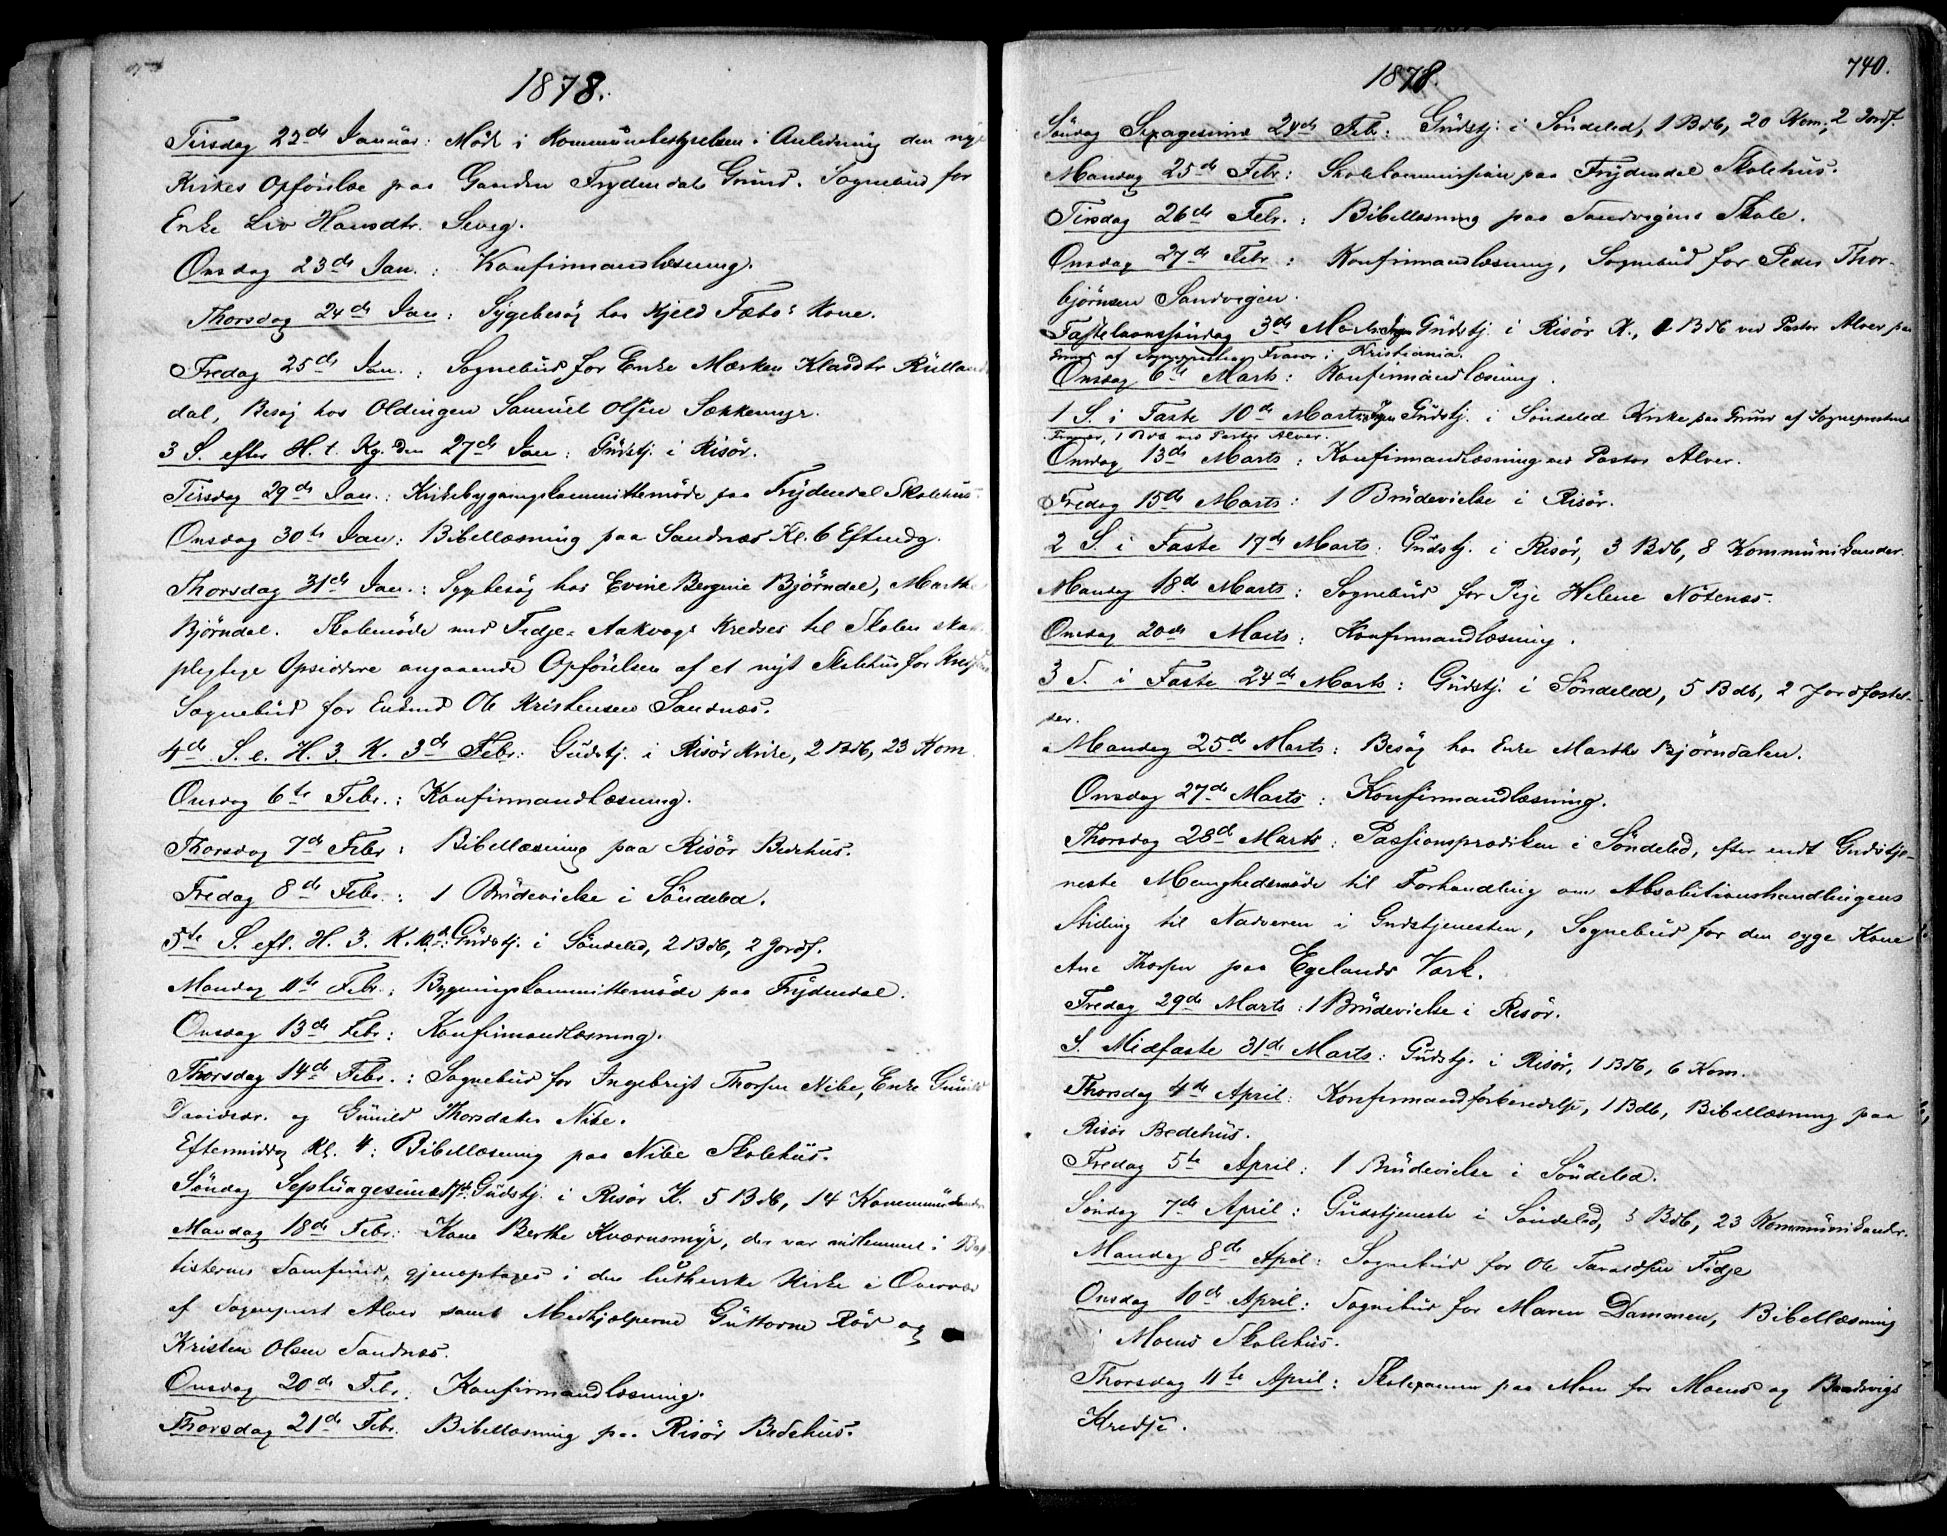 1878.
Tirsdag 22de Januar: Møde i Kommunebestyrelsen i Anledning den nye
Kirkes Opførelse paa Gaarden Frydendals Grund. Sognebud for
Enke Liv Hansdtr. Seveg.
Onsdag 23de Jan.: Konfirmandlæsning.
Thorsdag 24de Jan: Sygebesøg hos Kjeld Fæbo's Kone.
Fredag 25de Jan.: Sognebud for Enke Mærken
dal, Besøg hos Oldingen Samuel Olsen Sækkemyr.
3 S. efter H. t. Kg. den 27de Jan: Gudstj. i Risør.
Tirsdag 29de Jan.: Kirkebygningskommittemøde paa Frydendal Skolehus.
Onsdag 30te Jan: Bibellæsning paa Sandnæs Kl. 6 Eftmdg.
Thorsdag 31de Jan.: Sygebesøg hos Evine Bergine Bjørndal, Marthe
Bjørndal. Skolemøde med Fidje- Aakvags Kredses til Skolen skat
plegtige Opsiddere angaaende Opførelsen af et nyt Skolehus for
Sognebud for Enkmd Ole Kristensen Sandnæs.
4de S. e. H. 3. K. 3de Febr: Gudstj. i Risør Kirke, 2 Bdb, 23 Kom
Onsdag 6te Febr.: Konfirmandlæsning.
Thorsdag 7de Febr: Bibellæsning paa Risør Bedehus.
Fredag 8de Febr.: 1 Brudevielse i Søndeled.
5te S. eft. H. 3. K. Gudstj. i Søndeled, 2 Bdb, 2 Jordf.
Mandag 11te Febr.: Bygningskommittemøde paa Frydendal.
Onsdag 13de Febr: Konfirmandlæsning.
Thorsdag 14de Febr.: Sognebud for Ingebrigt Thorsen Nibe, Enke Gunild
Davidsdr. og Gunild Thorsdatter Nibe.
Eftermiddag Kl. 4: Bibellæsning paa Nibe Skolehus.
Søndag Septuagesima Gudstj. i Risør K. 5 Bdb, 14 Kommunikanter
Mandag 18de Febr: Kone Berthe Kværnsmyr, der var indlemmet i Bap
tisternes Samfund, gjenoptages i den lutherske Kirke i Overvær
af Sogneprest Alver samt Medhjælperne Guttorm Rød og
Kristen Olsen Sandnæs.
Onsdag 20de Febr: Konfirmandlæsning.
Thorsdag 21de Febr. Bibellæsning paa Risør Bedehus.
1878.
740.
Søndag Sexagesima 24de Feb: Gudstj. i Søndeled, 1 Bdb, 20 Kom, 2 Jordf.
Mandag 25de Febr: Skolekommission paa Frydendal Skolehus.
Tirsdag 26de Febr.: Bibellæsning paa Sandvigens Skole.
Onsdag 27de Febr: Konfirmandlæsning, Sognebud for Peder Thor-
bjørnsen Sandvigen.
Fastelavnssøndag 3de Marts: Ingen Gudstj. i Risør K., 1 Bdb ved Pastor Alver paa
Grund af Sogneprestens Fravær i Kristiania.
Onsdag 6te Marts: Konfirmandlæsning.
1 S. i Faste 10de Marts: Ingen Gudstj. i Søndeled Kirke paa Grund af Sogneprestens
Fravær, 1 Bdb ved Pastor Alver.
Onsdag 13de Marts: Konfirmandlæsning ved Pastor Alver.
Fredag 15de Marts: 1 Brudevielse i Risør.
2 S. i Faste 17de Marts: Gudstj. i Risør, 3 Bdb, 8 Kommunikander.
Mandag 18de Marts: Sognebud for Pige Helene Notenæs.
Onsdag 20de Marts: Konfirmandlæsning.
3 S. i Faste 24de Marts: Gudstj. i Søndeled, 5 Bdb, 2 Jordfæstel-
ser.
Mandag 25de Marts: Besøg hos Enke Marthe Bjørndalen.
Onsdag 27de Marts: Konfirmandlæsning.
Thorsdag 28de Marts: Passionsprædiken i Søndeled, efter endt Gudstje-
neste Menighedsmøde til Forhandling om Absolutionshandlingens
Stilling til Nadveren i Gudstjenesten, Sognebud for den syge Kone
Ane Thorsen paa Egelands Værk.
Fredag 29de Marts: 1 Brudevielse i Risør.
S. Midfaste 31de Marts: Gudstj. i Risør, 1 Bdb, 6 Kom.
Thorsdag 4de April: Konfirmandforberedelse, 1 Bdb, Bibellæsning paa
Risør Bedehus.
Fredag 5te April: 1 Brudevielse i Søndeled.
Søndag 7de April: Gudstjeneste i Søndeled, Bdb, 23 Kommunikander.
Mandag 8de April: Sognebud for Ole Fidje
Onsdag 10de April: Sognebud for Maren Dammen, Bibellæsning
i Moens Skolehus.
Thorsdag 11te April: Skoleexamen paa Moen for Moens og
Kredse.